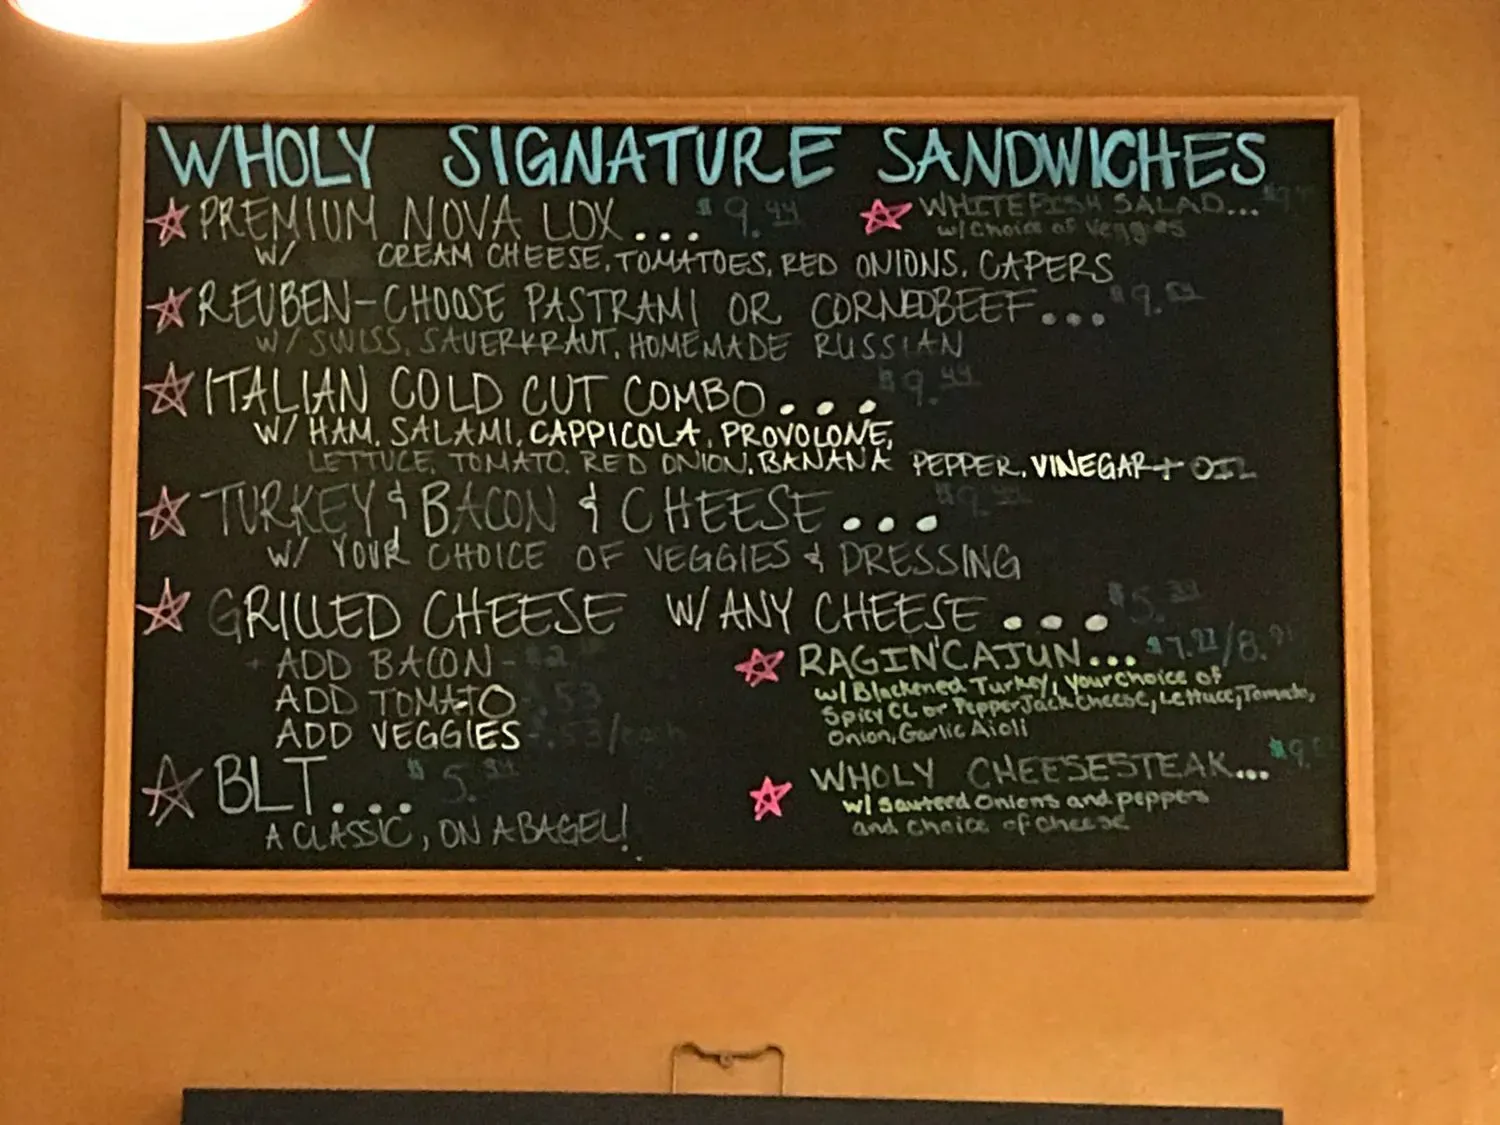 WHOLY SIGNATURE SANDWICHES
PREMIUM NOVA LOX... $9.44
W/ CREAM CHEESE, TOMATOES, RED ONIONS, CAPERS
WHITEFISH SALAD...
w/ Choice of Veggies
REUBEN-CHOOSE PASTRAMI OR CORNEDBEEF... $9.
W/ SWISS, SAUERKRAUT, HOMEMADE RUSSIAN
ITALIAN COLD CUT COMBO... $9.44
W/ HAM, SALAMI, CAPPICOLA, PROVOLONE,
LETTUCE, TOMATO, RED ONION, BANANA PEPPER, VINEGAR + OIL
TURKEY & BACON & CHEESE... $9.
W/ YOUR CHOICE OF VEGGIES & DRESSING
GRILLED CHEESE W/ ANY CHEESE... $5.
+ ADD BACON -
ADD TOMATO - .53
ADD VEGGIES - .53/each
BLT... $5.
A CLASSIC, ON A BAGEL!
RAGIN'CAJUN...
w/ Blackened Turkey, your choice of
Spicy CC or PepperJack Cheese, Lettuce, Tomato,
Onion, Garlic Aioli
WHOLY CHEESESTEAK... $9.
w/ Sauteed Onions and peppers
and choice of cheese